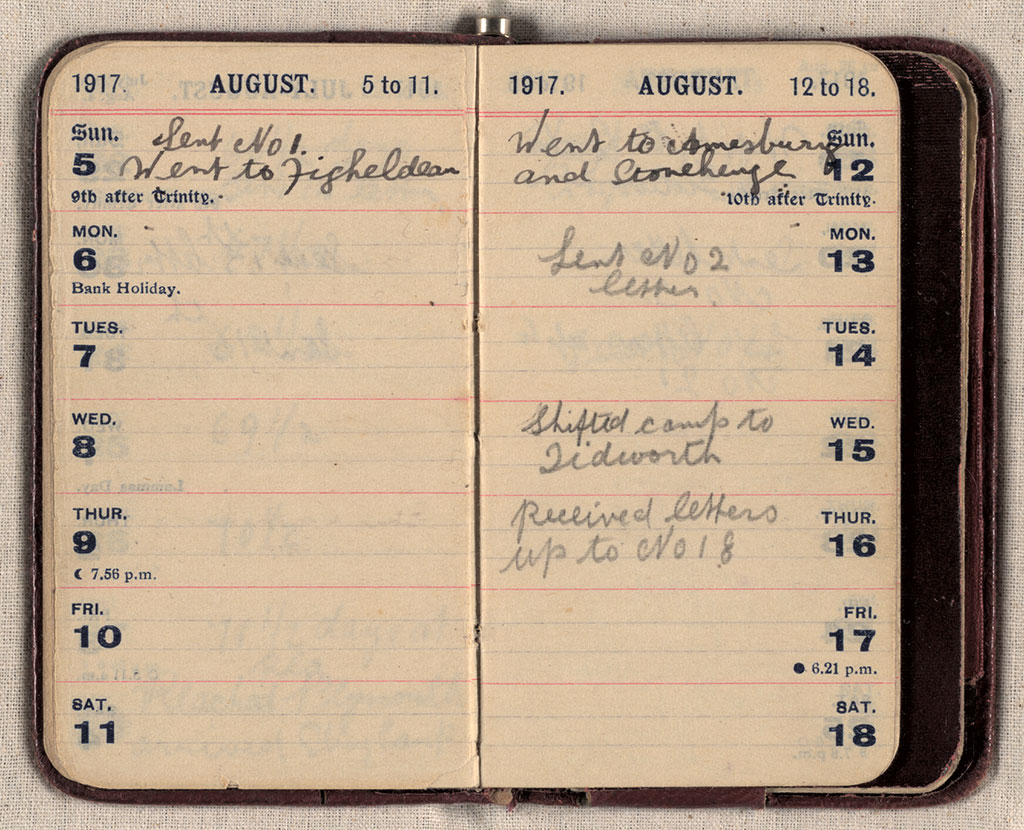 1917. AUGUST. 5 to 11.
Sun.
5
Sent No 1.
Went to Figheldean
9th after Trinity.
MON.
6
Bank Holiday.
TUES.
7
WED.
8
THUR.
9
☾ 7.56 p.m.
FRI.
10
SAT.
11
1917. AUGUST. 12 to 18.
Went to Amesbury
and Stonehenge
Sun.
12
10th after Trinity.
Sent No 2
letter
MON.
13
TUES.
14
Shifted camp to
Tidworth
WED.
15
Received letters
up to No 18
THUR.
16
FRI.
17
● 6.21 p.m.
SAT.
18